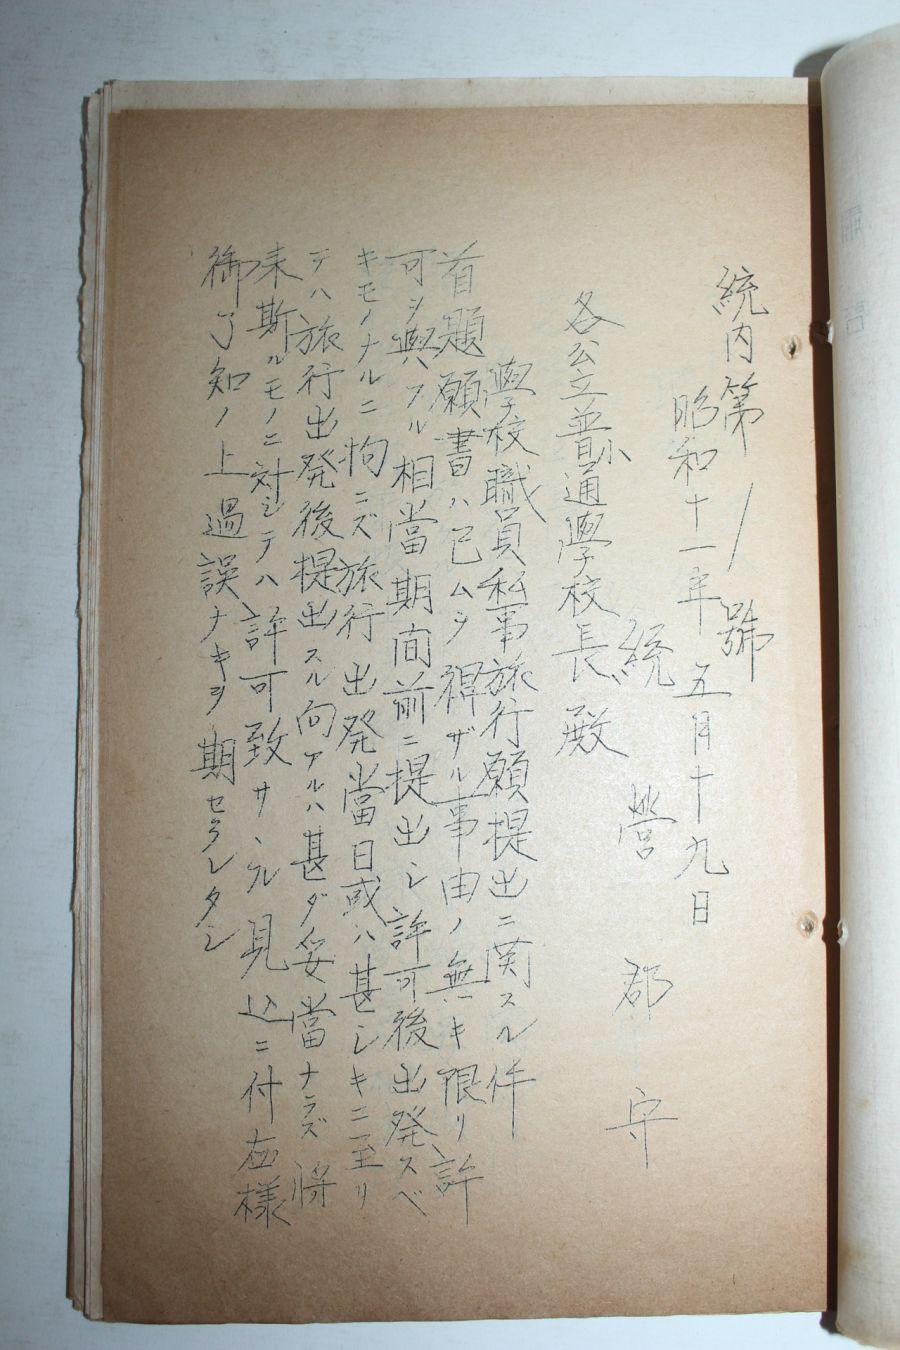 統内第 / 號
昭和十一年五月十九日
統營郡守
各公立普小通學校長殿
學校職員私事旅行願提出ニ関スル件
首題願書ハ已ムヲ得ザル事由ノ無キ限リ許
可ヲ與フル相當期間前ニ提出シ許可後出発スベ
キモノナルニ拘ラズ旅行出発當日或ハ甚シキニ至リ
テハ旅行出発後提出スル向アルハ甚ダ妥當ナラズ将
来斯ルモノニ対シテハ許可致サヾル見込ニ付右様
御了知ノ上過誤ナキヲ期セラレタシ